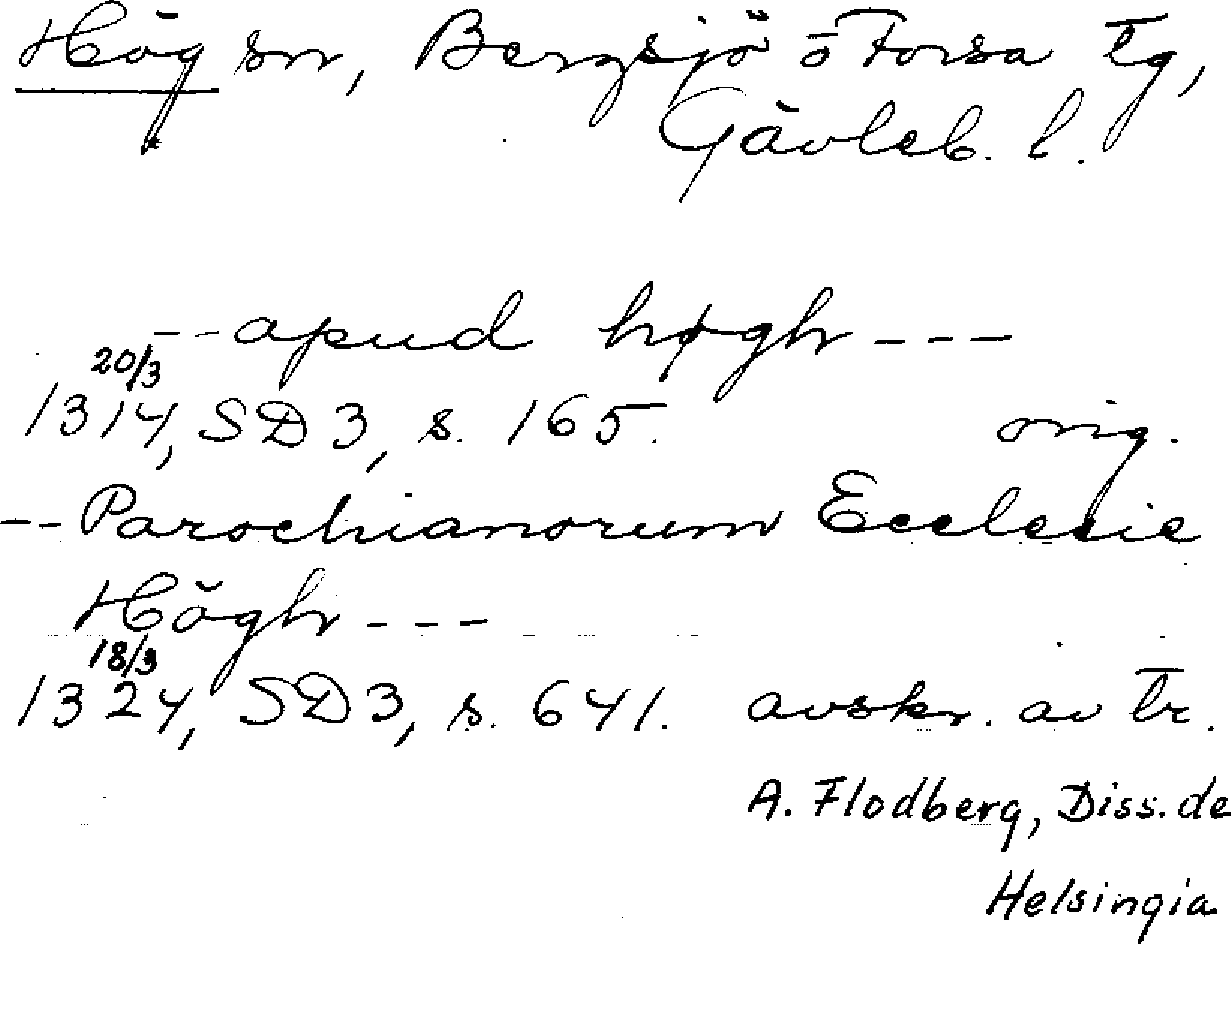 Hög sn, Bergsjö o Forsa tg,
Gävleb. l.
-- apud høgh ---
20/3
1314, SD 3, s. 165. orig.
-- Parochianorum Ecclesie
Högh ---
18/3
1324, SD 3, s. 641. avskr. av tr.
A. Flodberg, Diss. de
Helsingia